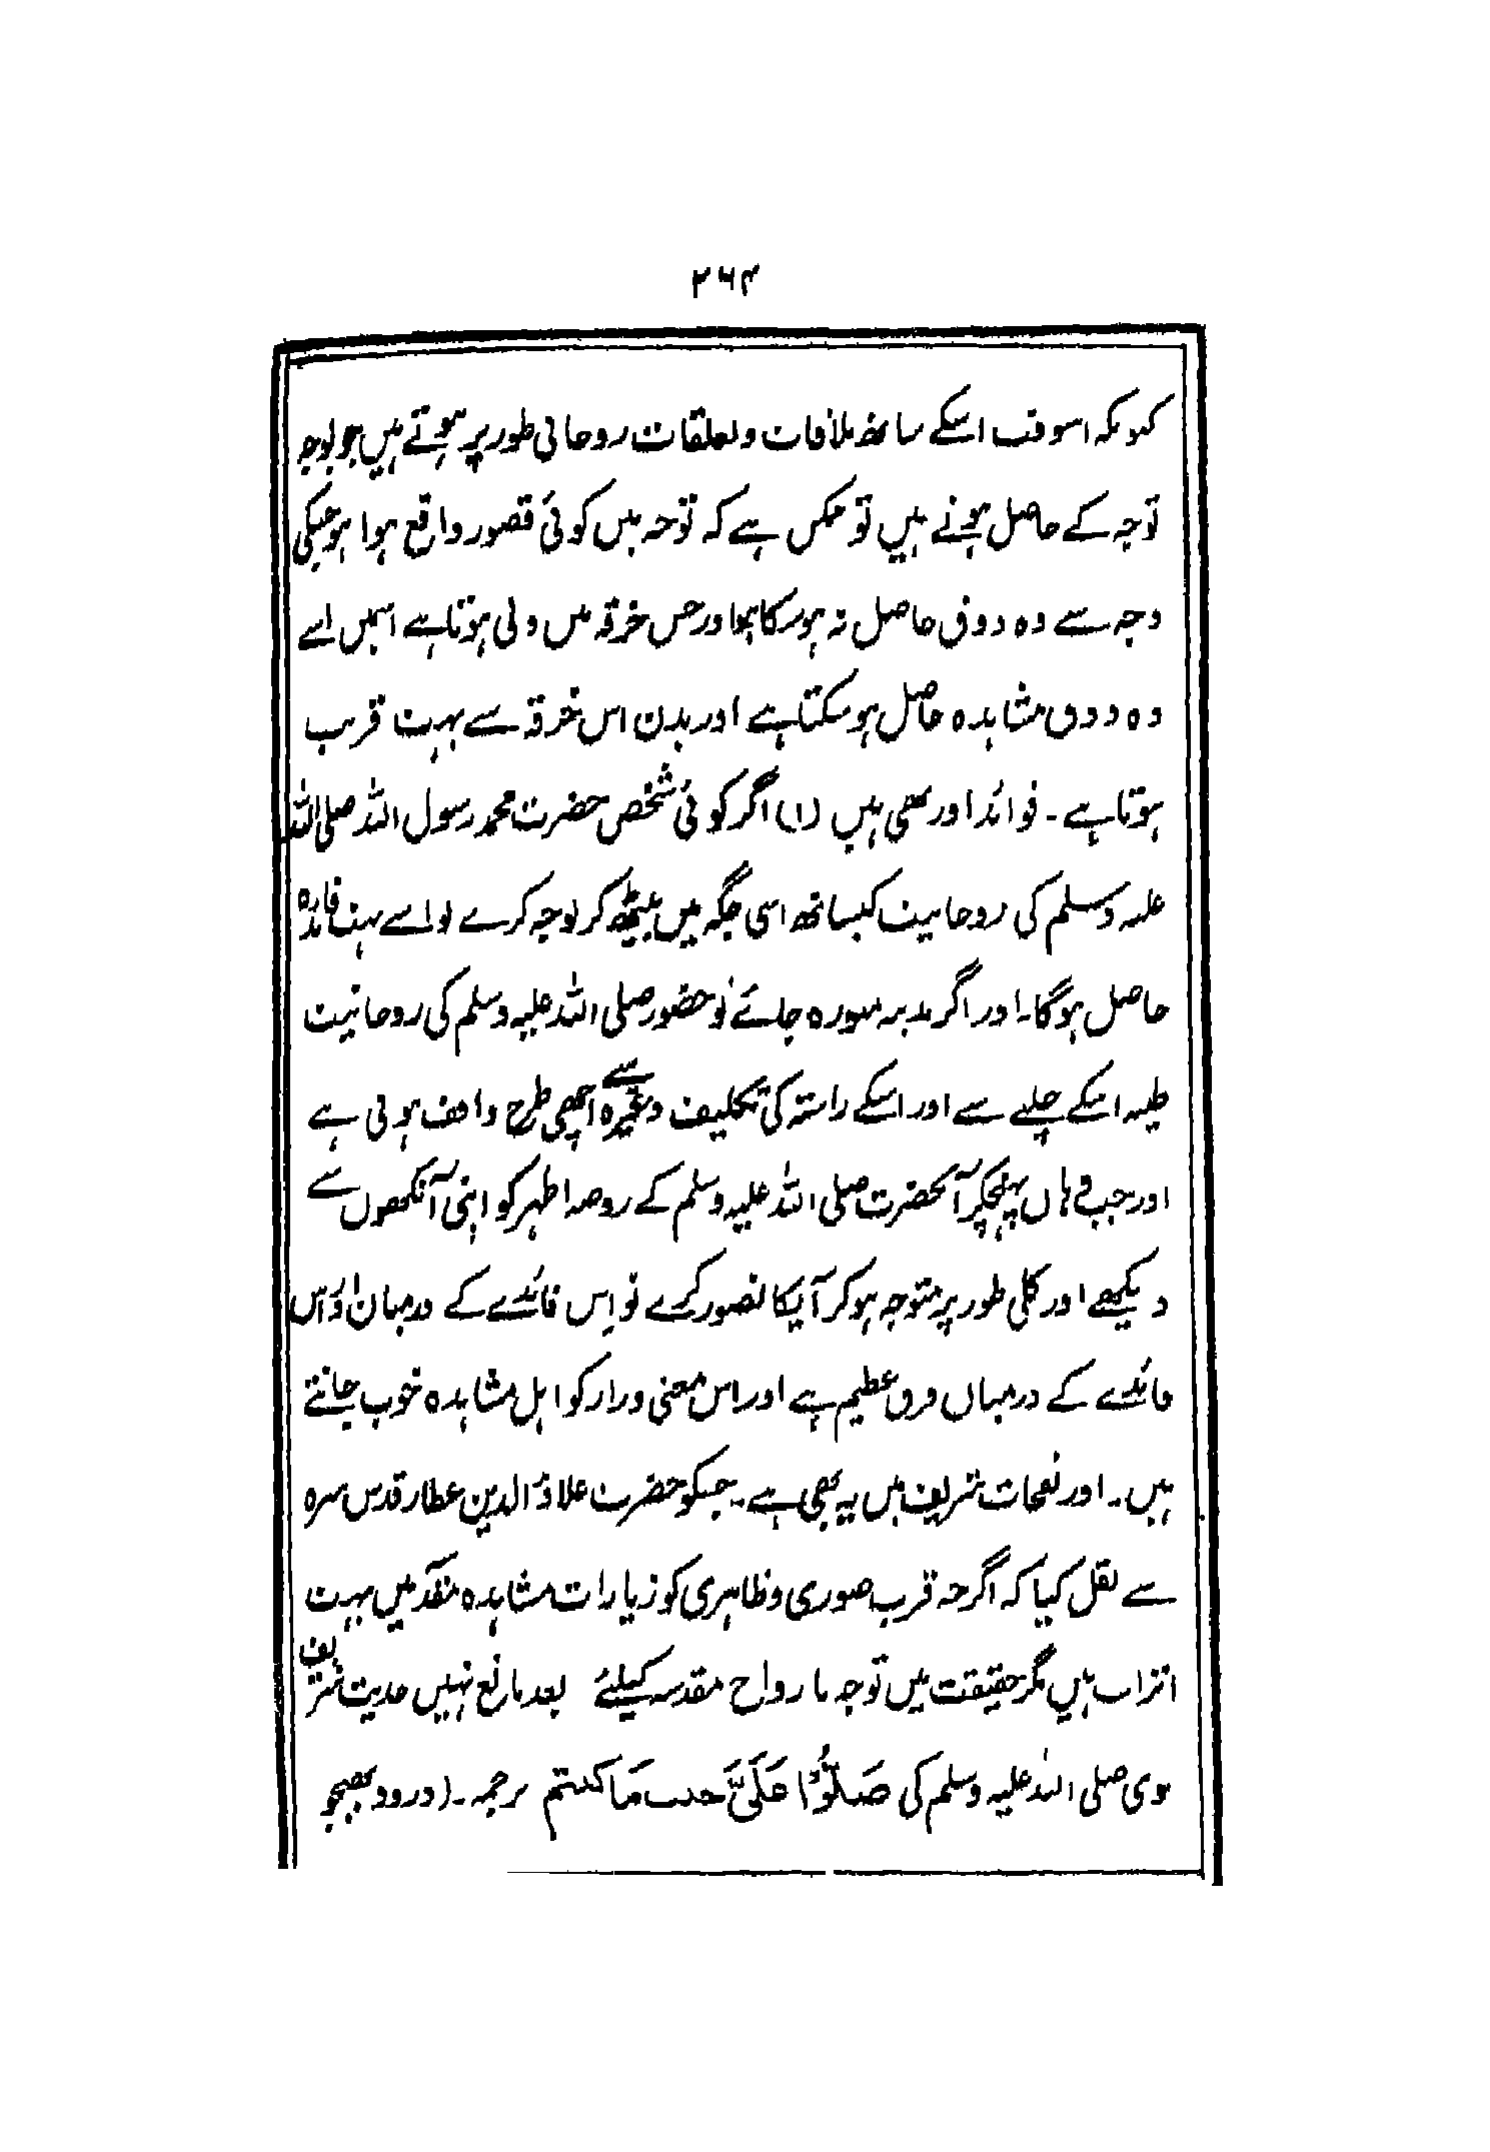 ۲۶۴
کیونکہ اسوقت اسکے ساتھ ملاقات وتعلقات روحانی طور پر ہوتے ہیں جو بوجہ
توجہ کے حاصل ہوتے ہیں تو ممکن ہے کہ توجہ میں کوئی قصور واقع ہوا ہو جسکی
وجہ سے وہ ذوق حاصل نہ ہو سکا ہو اور جس خرقہ میں ولی ہوتا ہے اسمیں اسے
وہ ذوق مشاہدہ حاصل ہو سکتا ہے اور بدن اس خرقہ سے بہت قریب
ہوتا ہے ۔ فوائد اور بھی ہیں (۱) اگر کوئی شخص حضرت محمد رسول اللہ صلی اللہ
علیہ وسلم کی روحانیت کیساتھ اسی جگہ میں بیٹھ کر توجہ کرے تو اسے بہت فائدہ
حاصل ہوگا۔ اور اگر مدینہ منورہ جائے تو حضور صلی اللہ علیہ وسلم کی روحانیت
طیبہ اسکے چلنے سے اور اسکے راستہ کی تکلیف وغیرہ سے اچھی طرح واقف ہوتی ہے
اور جب وہاں پہنچکر آنحضرت صلی اللہ علیہ وسلم کے روضہ اطہر کو اپنی آنکھوں سے
دیکھے اور کلی طور پر متوجہ ہو کر آپکا تصور کرے تو اس فائدے کے درمیان اور اس
فائدے کے درمیان فرق عظیم ہے اور اس معنی وراز کو اہل مشاہدہ خوب جانتے
ہیں ۔ اور نفحات شریف میں یہ بھی ہے ۔ جسکو حضرت علاؤ الدین عطار قدس سرہ
سے نقل کیا کہ اگرچہ قرب صوری وظاہری کو زیارات مشاہدہ مقدسہ میں بہت
اثرات ہیں مگر حقیقت میں توجہ بارواح مقدسہ کیلئے بعد مانع نہیں حدیث شریف
نبوی صلی اللہ علیہ وسلم کی صَلُّوْا عَلَیَّ حیث مَا کنتم ترجمہ ۔ (درود بھیجو